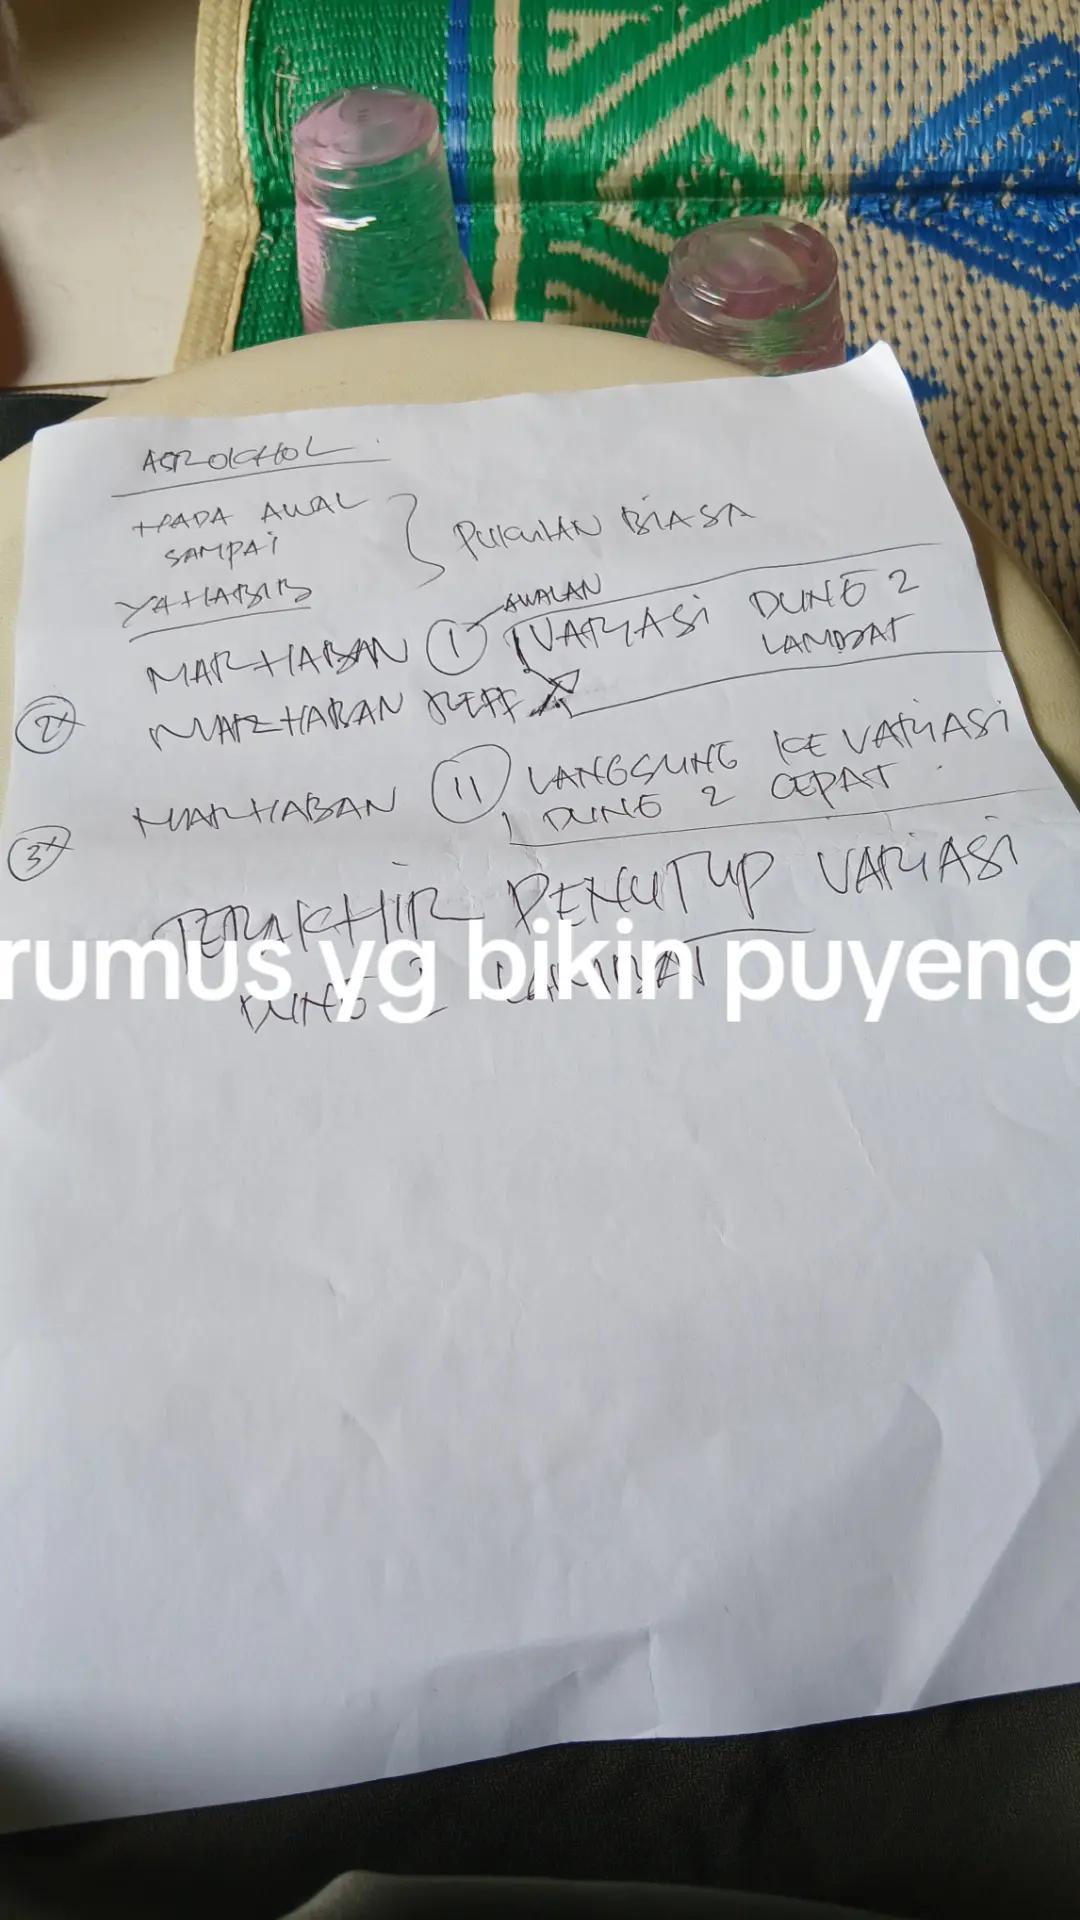 ASROKHOL
+PADA AWAL
SAMPAI
YAHABIB
} PUKULAN BIASA
MARHABAN I AWALAN VARIASI DUNG 2
LAMBAT
2x MARHABAN REFF
MARHABAN II LANGSUNG KE VARIASI
DUNG 2 CEPAT
3x
TERAKHIR PENUTUP VARIASI
DUNG 2 LAMBAT
rumus yg bikin puyeng